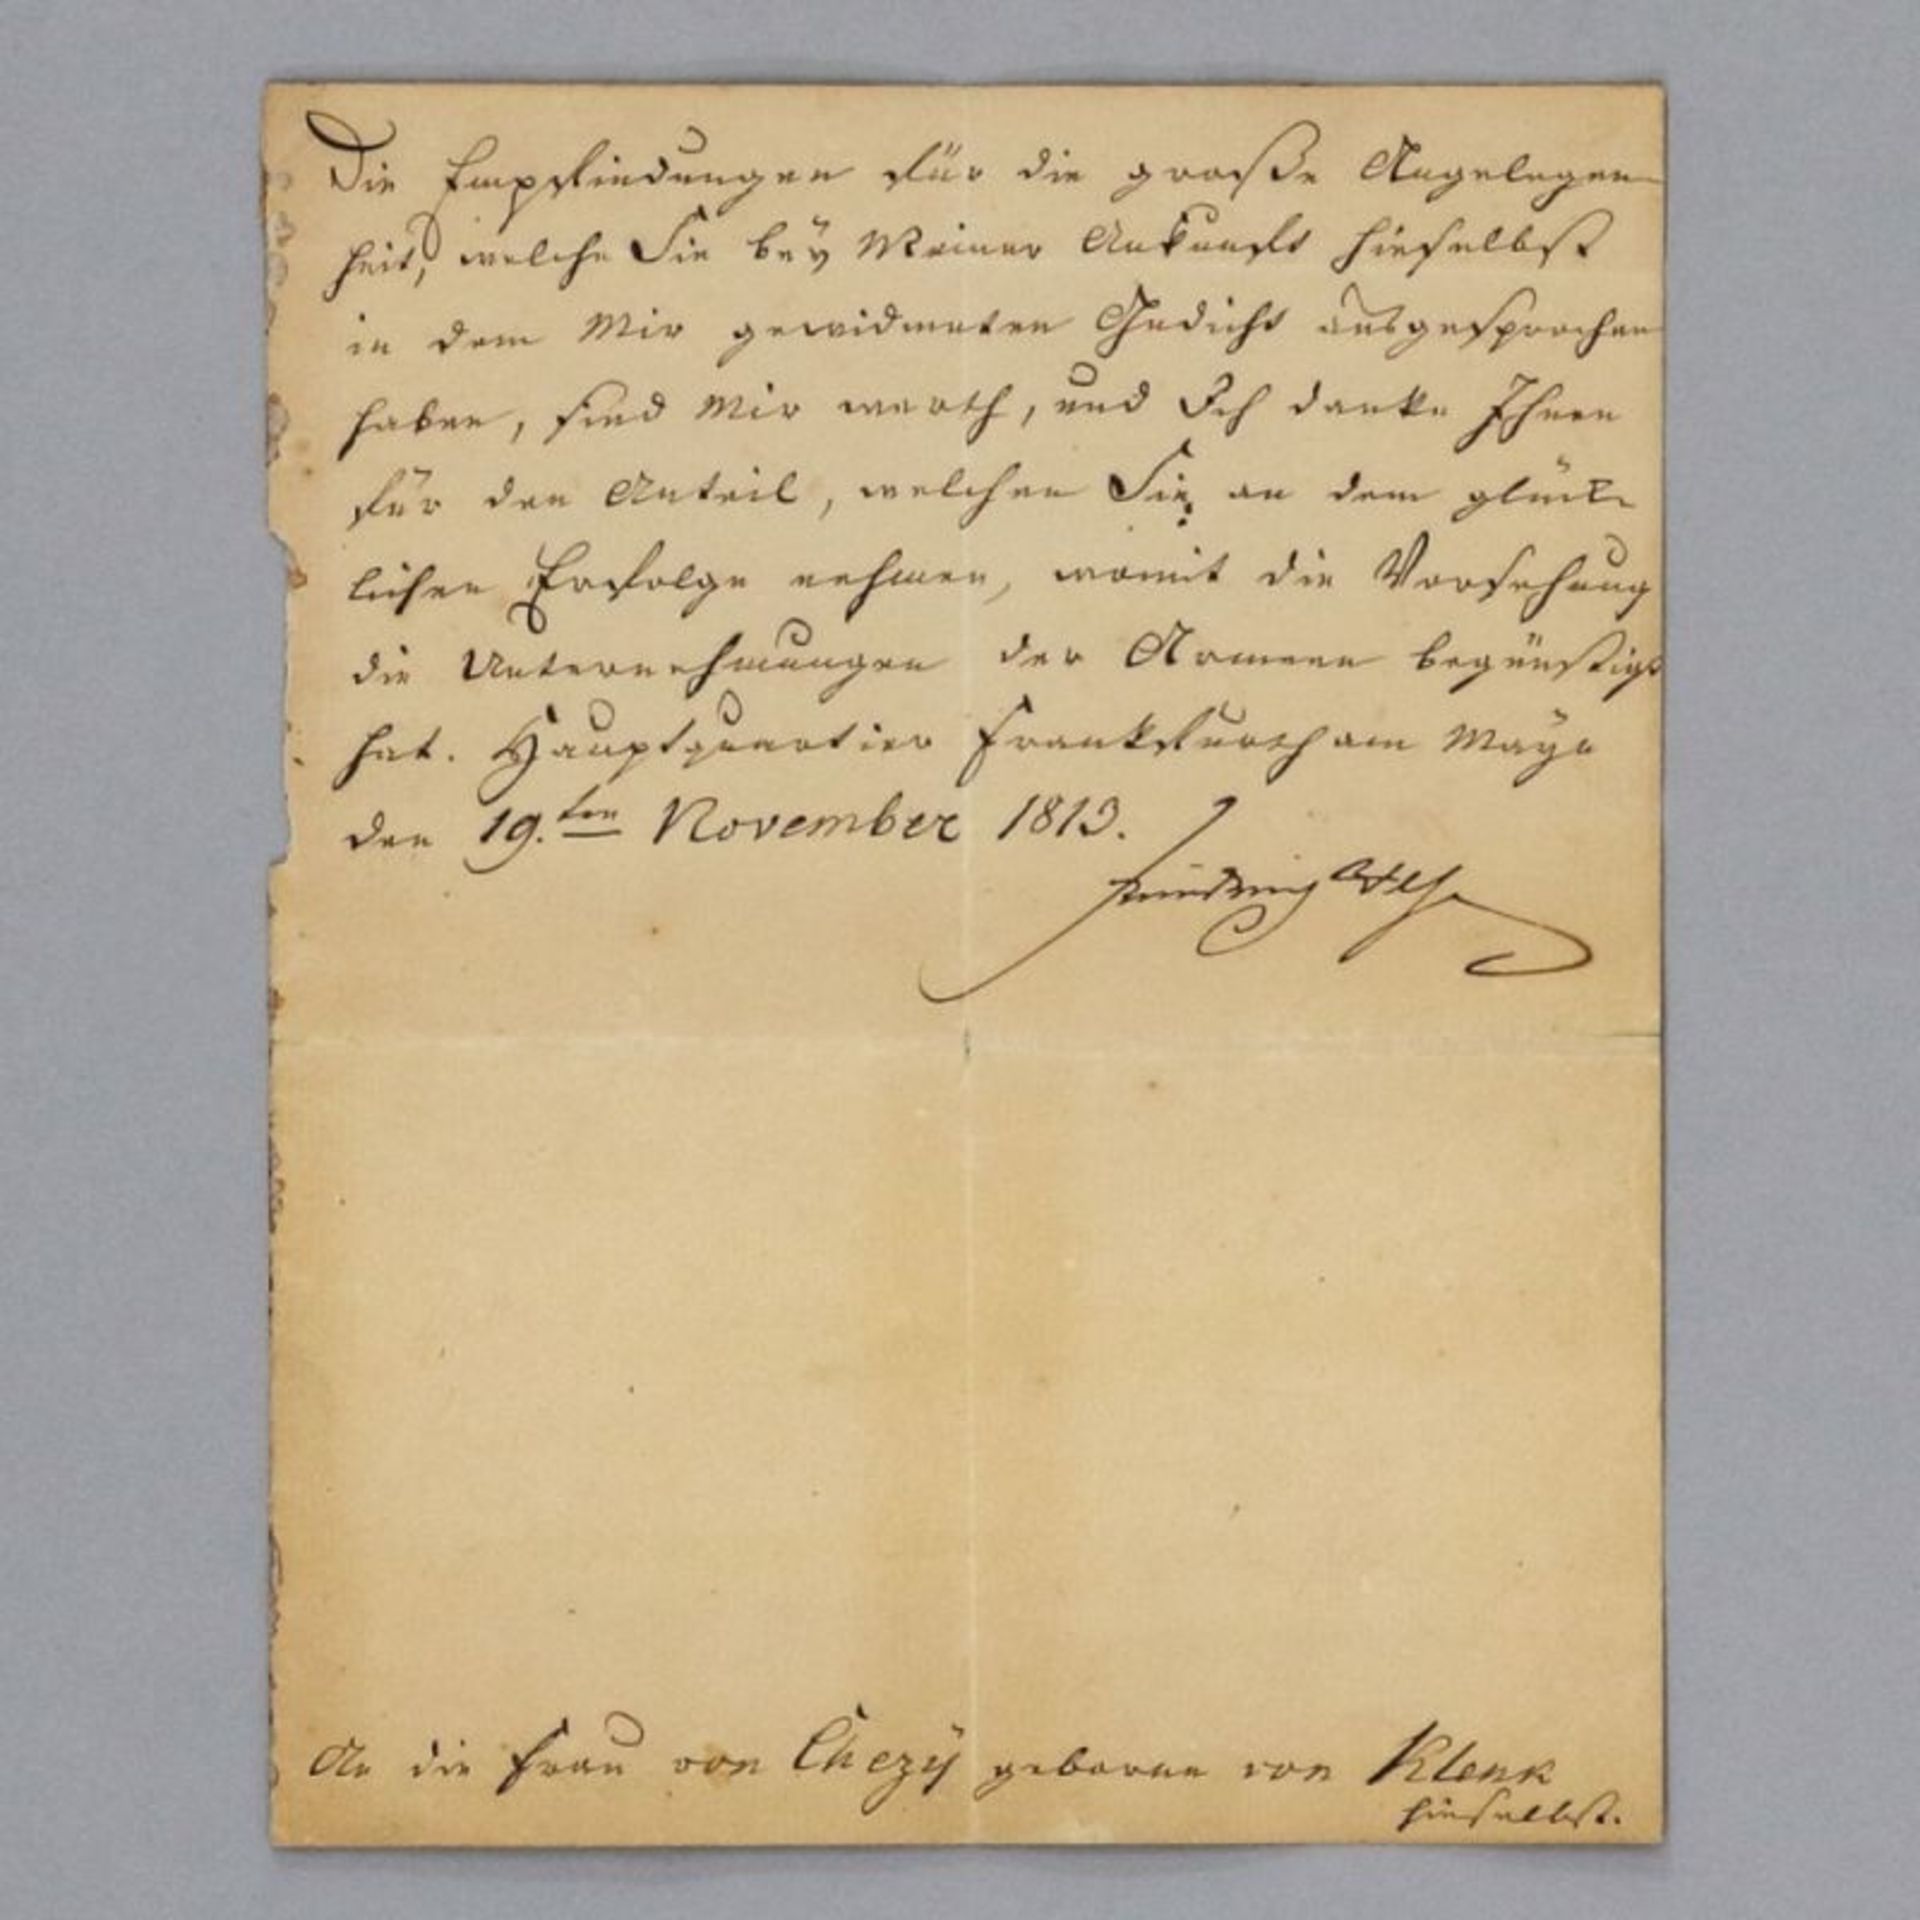 Die Empfindungen für die große Angelegen-
heit, welche Sie bey Meiner Ankunft hieselbst
in dem Mir gewidmeten Gedicht ausgesprochen
haben, sind Mir werth, und Ich danke Ihnen
für den Anteil, welchen Sie an dem glück-
lichen Erfolge nehmen, womit die Vorsehung
die Unternehmungen der Armeen begünstigt
hat. Hauptquartier Frankfurth am Mayn
den 19.ten November 1813.
Friedrich Wilh
An die Frau von Chezÿ geborne von Klenk
hieselbst.